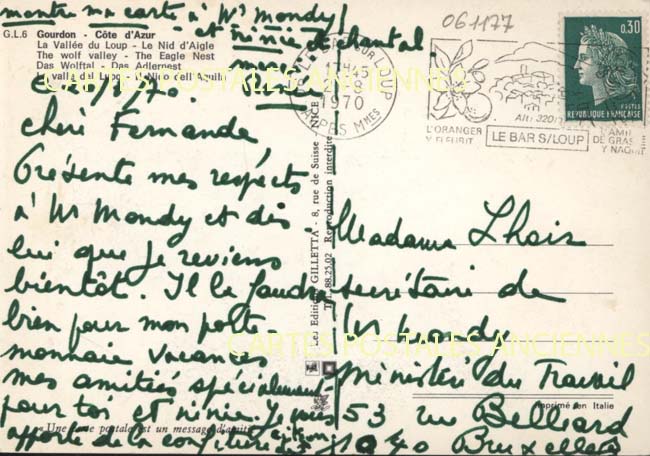 montre ma carte à Mr Mondy!
et ninie et chantal
merci
G.L.6 Gourdon - Côte d'Azur
La Vallée du Loup - Le Nid d'Aigle
The wolf valley - The Eagle Nest
Das Wolftal - Das Adlernest
La valle del Lupo - Il Nido dell'Aquila
chère Fernande,
Présente mes respects
à Mr Mondy et dis
lui que je reviens
bientôt. Il le faudra
bien pour mon porte
monnaie vacances
mes amitiés spécialement
pour toi et ninie. Je vous
apporte de la confiture
« Une carte postale est un message d'amitié
Les Editions GILLETTA - 8, rue de Suisse - NICE
Tél. 88.25.02 Reproduction interdite
061177
LE BAR SUR LOUP
17H45
8
1970
ALPES Mmes
L'ORANGER
Y FLEURIT
Alt: 320m
LE BAR S/LOUP
L'AMI
DE GRAS
Y NAQUIT
0,30
POSTES
REPUBLIQUE FRANÇAISE
Madame Lhois
secrétaire de
Mr Mondy
Ministère du Travail
53 rue Belliard
1040 Bruxelles
Imprimé en Italie
CARTES POSTALES ANCIENNES
CARTES POSTALES ANCIENNES